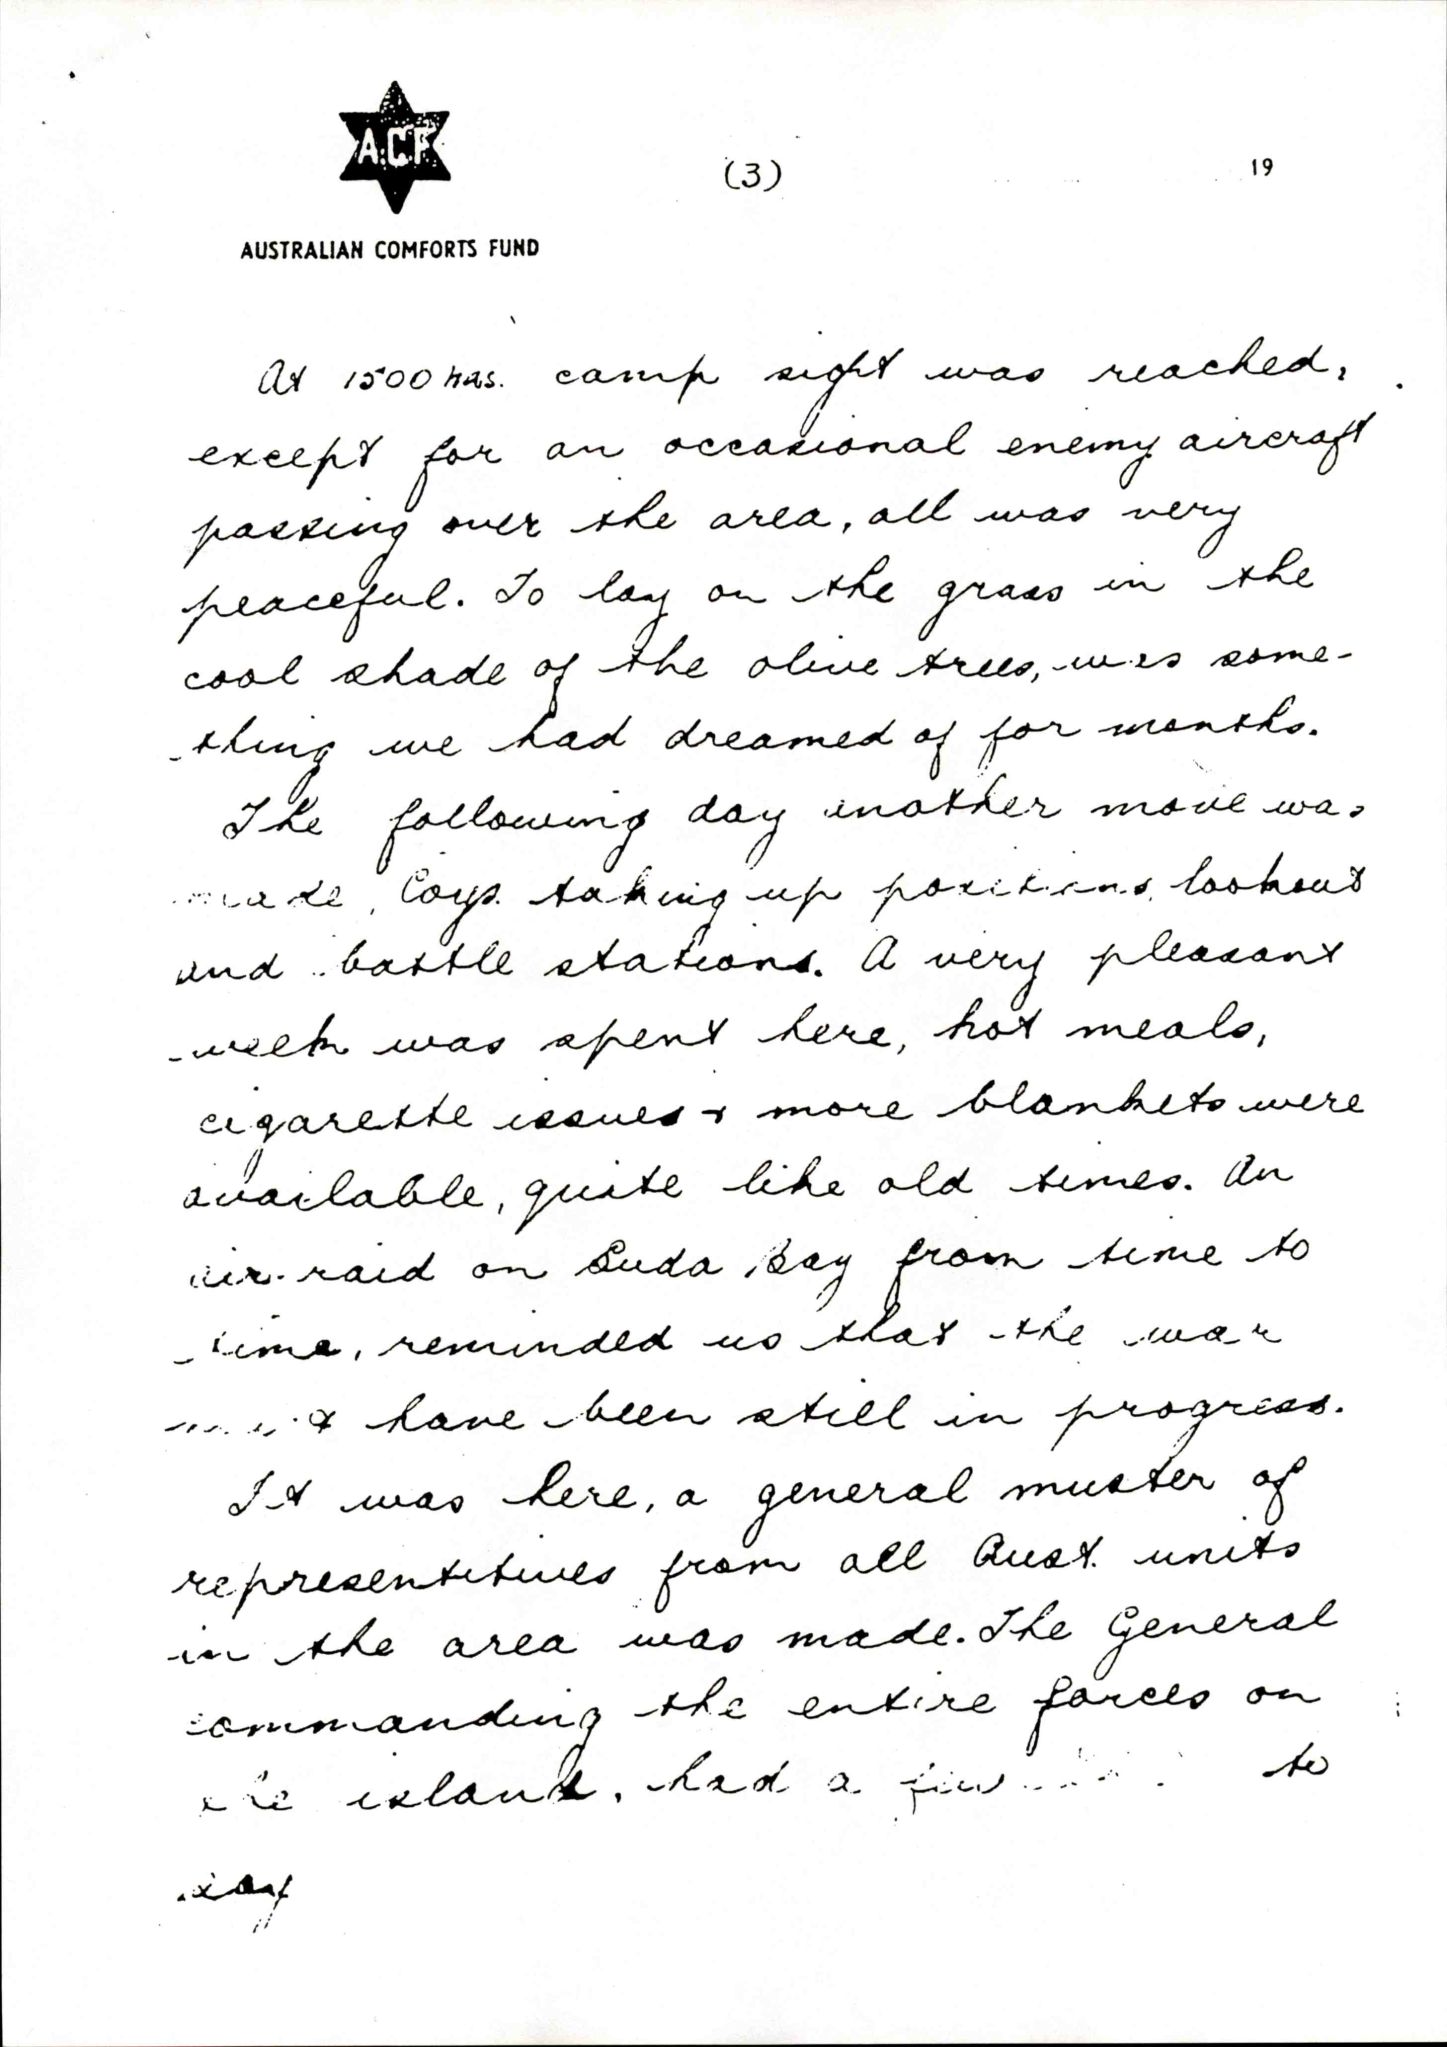 A.C.F.
(3)
19
AUSTRALIAN COMFORTS FUND
At 1500 hrs. camp sight was reached,
except for an occasional enemy aircraft
passing over the area, all was very
peaceful. To lay on the grass in the
cool shade of the olive trees, was some-
thing we had dreamed of for months.
The following day another move was
made, Coys. taking up positions, lookout
and battle stations. A very pleasant
week was spent here, hot meals,
cigarette issues & more blankets were
available, quite like old times. An
air-raid on Suda Bay from time to
time, reminded us that the war
must have been still in progress.
It was here, a general muster of
representitives from all Aust. units
in the area was made. The General
commanding the entire forces on
the island, had a few to
say